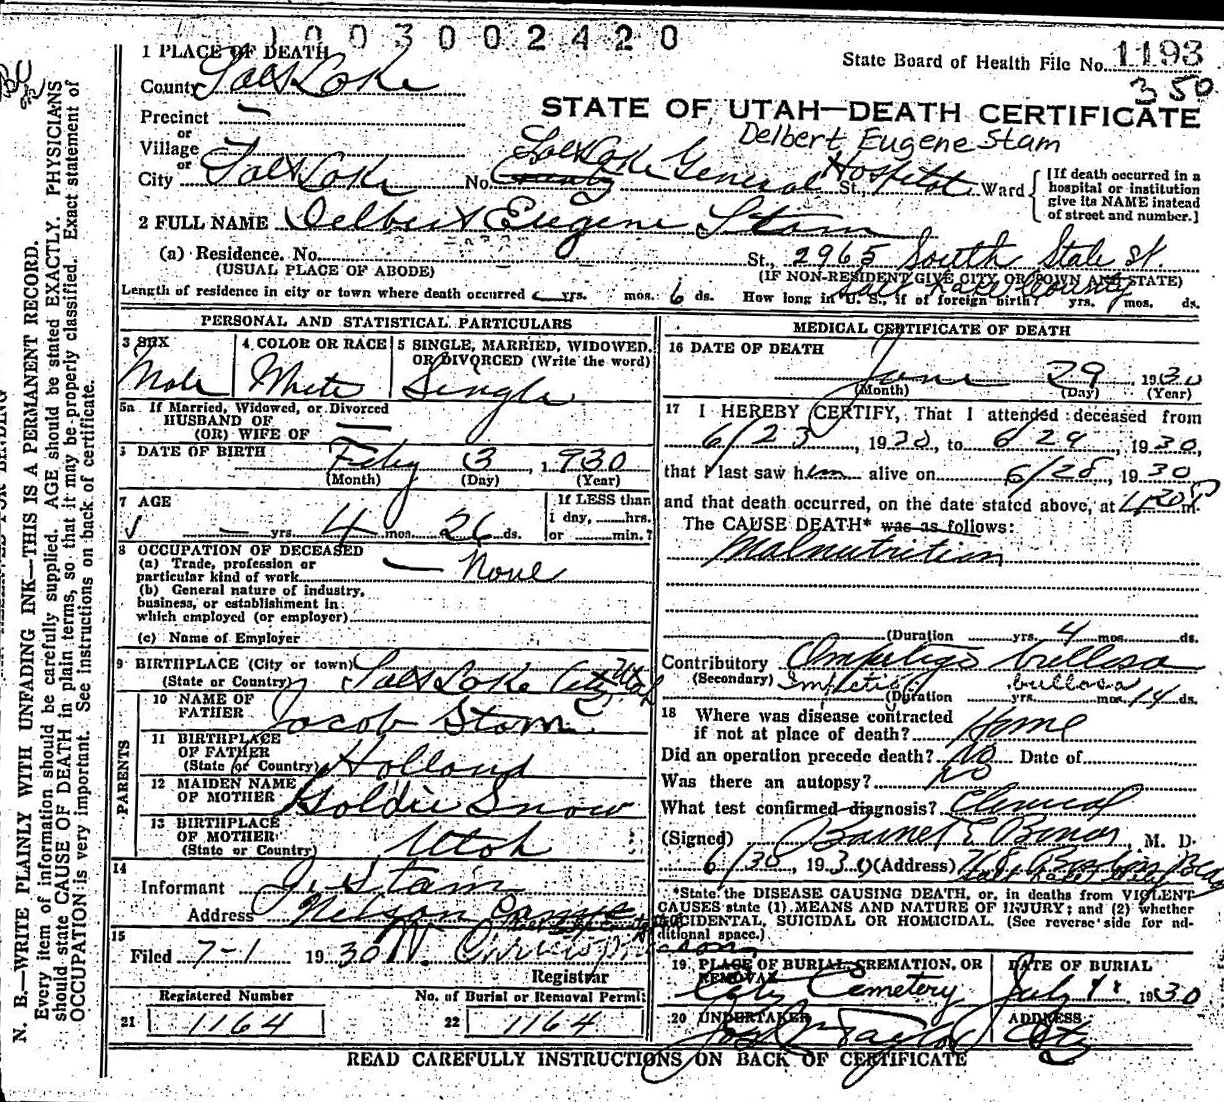 1003002420
1 PLACE OF DEATH
State Board of Health File No. 1193
350
County Salt Lake
STATE OF UTAH—DEATH CERTIFICATE
Precinct —
Delbert Eugene Stam
or
Village —
or
City Salt Lake No. Salt Lake County General Hospital St., Ward
[If death occurred in a
hospital or institution
give its NAME instead
of street and number.]
2 FULL NAME Delbert Eugene Stam
(a) Residence. No. St., 2965 South State St.
(USUAL PLACE OF ABODE)
(IF NON-RESIDENT GIVE CITY OR TOWN AND STATE)
Salt Lake County
Length of residence in city or town where death occurred yrs. mos. 6 ds. How long in U. S., if of foreign birth? yrs. mos. ds.
PERSONAL AND STATISTICAL PARTICULARS
3 SEX
Male
4 COLOR OR RACE
White
5 SINGLE, MARRIED, WIDOWED,
OR DIVORCED (Write the word)
Single
5a If Married, Widowed, or Divorced
HUSBAND OF
(OR) WIFE OF —
DATE OF BIRTH Feby 3, 1930
(Month) (Day) (Year)
7 AGE
— yrs. 4 mos. 26 ds.
If LESS than
1 day, hrs.
or min.?
8 OCCUPATION OF DECEASED
(a) Trade, profession or
particular kind of work — None
(b) General nature of industry,
business, or establishment in
which employed (or employer)
(c) Name of Employer
9 BIRTHPLACE (City or town)
(State or Country) Salt Lake City Utah
PARENTS
10 NAME OF
FATHER Jacob Stam
11 BIRTHPLACE
OF FATHER
(State or Country) Holland
12 MAIDEN NAME
OF MOTHER Goldie Snow
13 BIRTHPLACE
OF MOTHER
(State or Country) Utah
14
Informant J. Stam
Address Nelson
15
Filed 7-1 1930 W.
Registrar
Registered Number
21 1164
No. of Burial or Removal Permit
22 1164
MEDICAL CERTIFICATE OF DEATH
16 DATE OF DEATH
June 29 1930
(Month) (Day) (Year)
17 I HEREBY CERTIFY, That I attended deceased from
6/23, 1930, to 6/29, 1930,
that I last saw him alive on 6/28, 1930
and that death occurred, on the date stated above, at 430P m.
The CAUSE DEATH* was as follows:
Malnutrition
(Duration yrs. 4 mos. ds.
Contributory Impetigo bullosa
(Secondary) Impetigo bullosa
(Duration yrs. mos. 14 ds.
18 Where was disease contracted
if not at place of death? Home
Did an operation precede death? No Date of
Was there an autopsy? No
What test confirmed diagnosis? Clinical
(Signed) Barnet E. Bonar, M. D.
6/30, 1930 (Address) 768
*State the DISEASE CAUSING DEATH, or, in deaths from VIOLENT
CAUSES state (1) MEANS AND NATURE OF INJURY; and (2) whether
ACCIDENTAL, SUICIDAL OR HOMICIDAL. (See reverse side for ad-
ditional space.)
19 PLACE OF BURIAL, CREMATION, OR
REMOVAL
City Cemetery
DATE OF BURIAL
July 1 1930
20 UNDERTAKER
Jos. Taylor
ADDRESS
City
READ CAREFULLY INSTRUCTIONS ON BACK OF CERTIFICATE
N. B.—WRITE PLAINLY WITH UNFADING INK—THIS IS A PERMANENT RECORD.
Every item of information should be carefully supplied. AGE should be stated EXACTLY. PHYSICIANS
should state CAUSE OF DEATH in plain terms, so that it may be properly classified. Exact statement of
OCCUPATION is very important. See instructions on back of certificate.